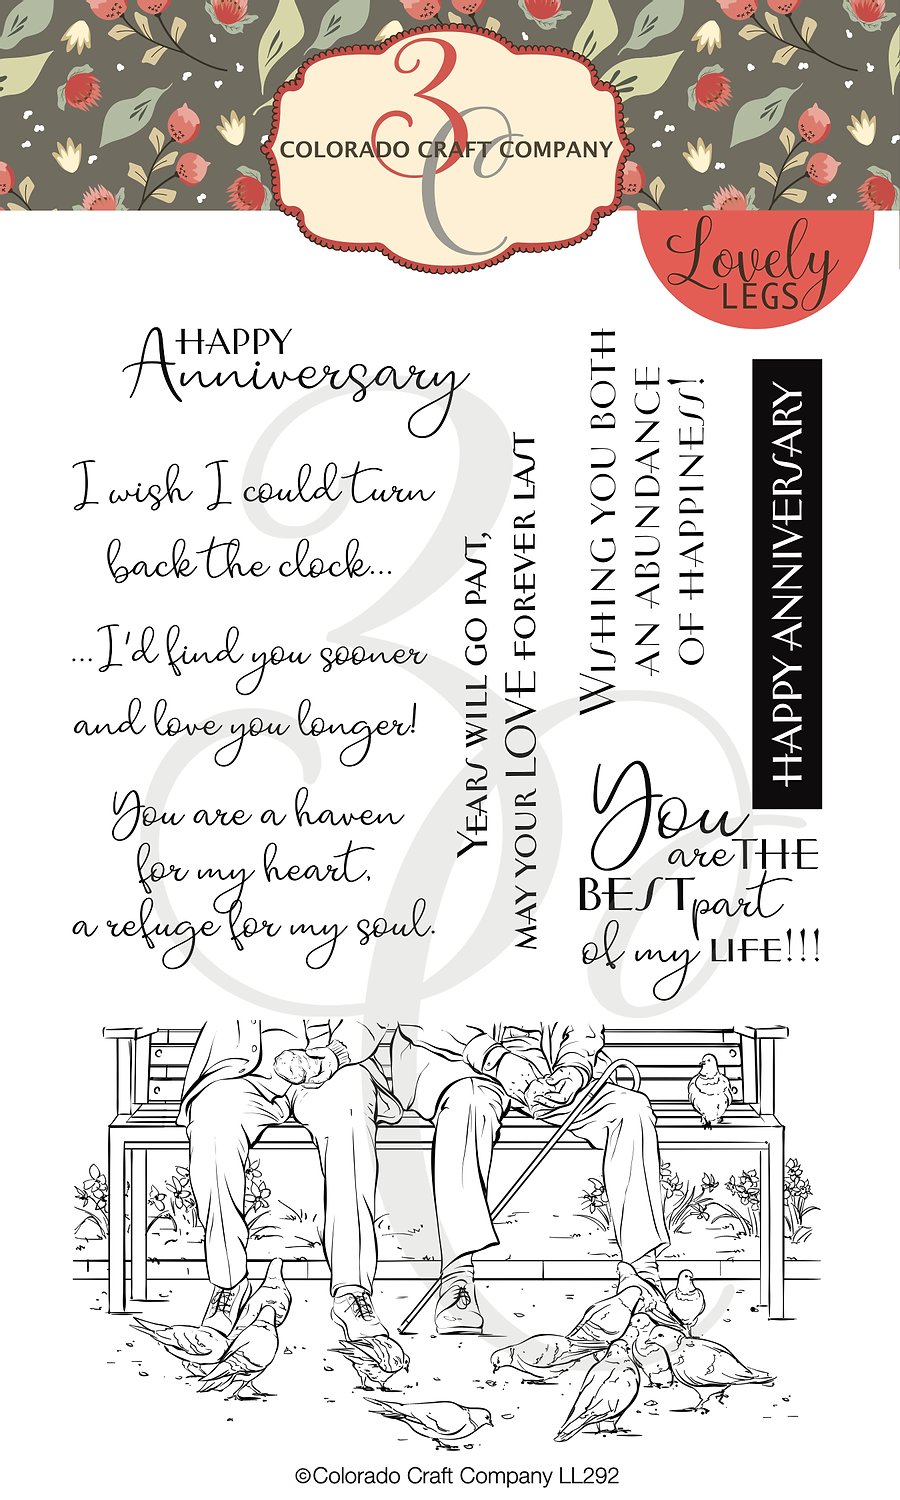 3C
COLORADO CRAFT COMPANY
Lovely
LEGS
HAPPY
Anniversary
I wish I could turn
back the clock...
...I'd find you sooner
and love you longer!
You are a haven
for my heart,
a refuge for my soul.
YEARS WILL GO PAST,
MAY YOUR LOVE FOREVER LAST
WISHING YOU BOTH
AN ABUNDANCE
OF HAPPINESS!
HAPPY ANNIVERSARY
You
are THE
BEST part
of my LIFE!!!
3C
©Colorado Craft Company LL292